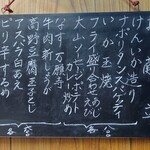 けんいか造り
ナポリタンスパゲティ
いか玉焼
フライ盛り合せ
大山ソーセージポテト炒め
なす万願寺
牛肉新しょうが
高野豆腐玉子とじ
アスパラ白あえ
ピリ辛するめ